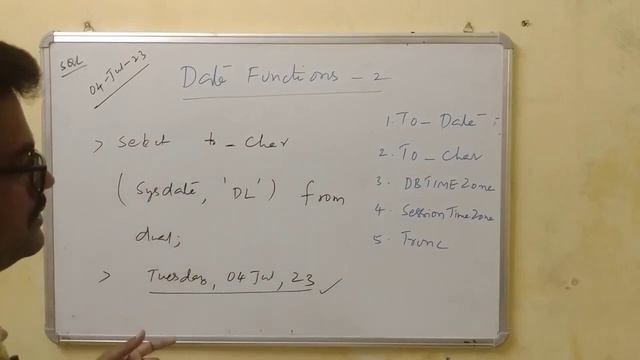 SQL
04-Jul-23
Date Functions - 2
> select to_char
(sysdate, 'DL') from
dual;
> Tuesday, 04 Jul, 23 ✓
1. To_Date :
2. To_Char
3. DBTIMEZone
4. SessionTimeZone
5. Trunc